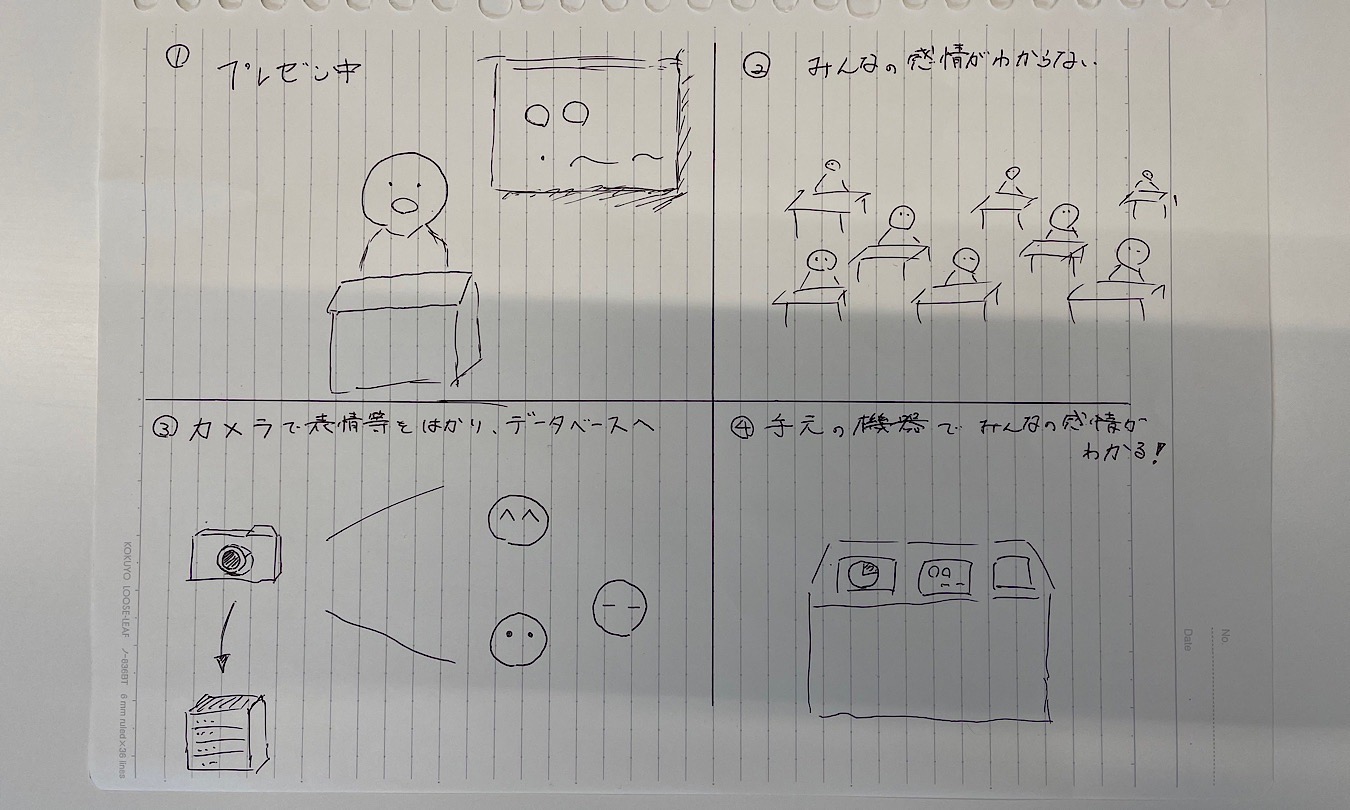 ① プレゼン中
② みんなの感情がわからない..
③ カメラで表情等をはかり、データベースへ
④ 手元の機器でみんなの感情が
わかる!
KOKUYO LOOSE-LEAF ノ-836BT 6 mm ruled×36 lines
No.
Date